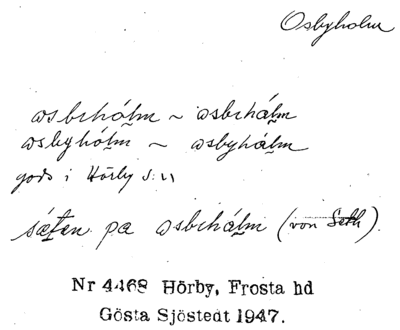 Osbyholm
osbrhólm ~ osbrhálm
osbyhólm ~ osbyhálm
gods i Hörby s:n
sä́ten pa osbrhálm (von Seth).
Nr 4468 Hörby, Frosta hd
Gösta Sjöstedt 1947.